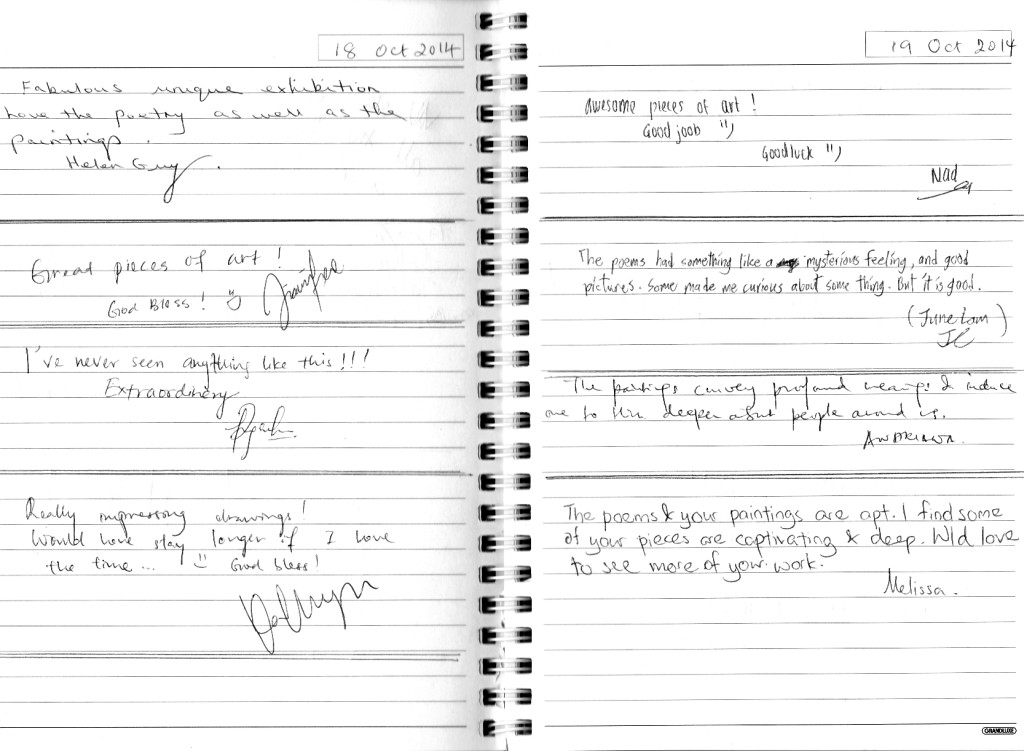 18 Oct 2014
Fabulous unique exhibition
love the poetry as well as the
paintings.
Helen Guy.
Great pieces of art !
God Bless !
I've never seen anything like this!!!
Extraordinary
Really impressing drawings!
Would love stay longer if I have
the time... God bless!
19 Oct 2014
awesome pieces of art !
Good joob
Goodluck
Nad
The poems had something like a mysterious feeling, and good
pictures. Some made me curious about some thing. But it is good.
(June Lam)
JL
The paintings convey profound meanings & induce
me to think deeper about people around us.
The poems & your paintings are apt. I find some
of your pieces are captivating & deep. Wld love
to see more of your work.
Melissa.
GRANDLUXE